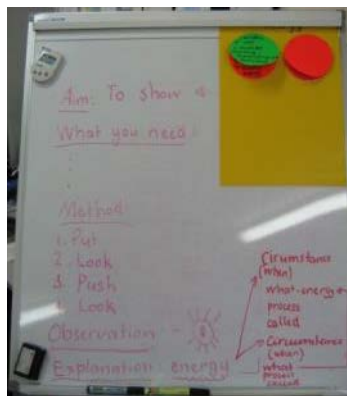 Aim: To show
What you need:
Method:
1. Put
2. Look
3. Push
4. Look
Observation -
Explanation: energy
Circumstance
(when)
what-energy
process
called
Circumstance
(when)
what
process
called